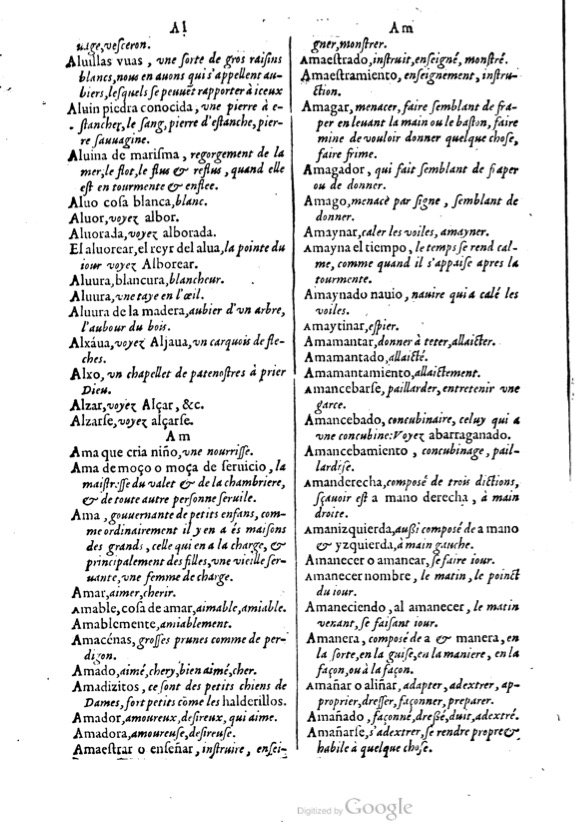 Al
uage, veſceron.
Aluillas vuas, vne ſorte de gros raiſins
blancs, nous en auons qui s'appellent au-
biers, leſquels ſe peuuẽt rapporter à iceux
Aluin piedra conocida, vne pierre à e-
ſtancher, le ſang, pierre d'eſtanche, pier-
re ſauuagine.
Aluina de mariſma, regorgement de la
mer, le flot, le flus & reflus, quand elle
eſt en tourmente & enflee.
Aluo coſa blanca, blanc.
Aluor, voyez albor.
Aluorada, voyez alborada.
El aluorear, el reyr del alua, la pointe du
iour voyez Alborear.
Aluura, blancura, blancheur.
Aluura, vne taye en l'œil.
Aluura de la madera, aubier d'vn arbre,
l'aubour du bois.
Alxáua, voyez Aljaua, vn carquois de fle-
ches.
Alxo, vn chapellet de patenoſtres à prier
Dieu.
Alzar, voyez Alçar, &c.
Alzarſe, voyez alçarſe.
Am
Ama que cria niño, vne nourriſſe.
Ama de moço o moça de ſeruicio, la
maiſtreſſe du valet & de la chambriere,
& de toute autre perſonne ſeruile.
Ama, gouuernante de petits enfans, com-
me ordinairement il y en a és maiſons
des grands, celle qui en a la charge, &
principalement des filles, vne vieille ſer-
uante, vne femme de charge.
Amar, aimer, cherir.
Amable, coſa de amar, aimable, amiable.
Amablemente, amiablement.
Amacénas, groſſes prunes comme de per-
digon.
Amado, aimé, chery, bien aimé, cher.
Amadizitos, ce ſont des petits chiens de
Dames, fort petits cõme les halderillos.
Amador, amoureux, deſireux, qui aime.
Amadora, amoureuſe, deſireuſe.
Amaeſtrar o enſeñar, inſtruire, enſei-
Am
gner, monſtrer.
Amaeſtrado, inſtruit, enſeigné, monſtré.
Amaeſtramiento, enſeignement, inſtru-
ction.
Amagar, menacer, faire ſemblant de fra-
per en leuant la main ou le baſton, faire
mine de vouloir donner quelque choſe,
faire frime.
Amagador, qui fait ſemblant de fraper
ou de donner.
Amago, menacè par ſigne, ſemblant de
donner.
Amaynar, caler les voiles, amayner.
Amayna el tiempo, le temps ſe rend cal-
me, comme quand il s'appaiſe apres la
tourmente.
Amaynado nauio, nauire qui a calé les
voiles.
Amaytinar, eſpier.
Amamantar, donner à teter, allaicter.
Amamantado, allaicté.
Amamantamiento, allaictement.
Amancebarſe, paillarder, entretenir vne
garce.
Amancebado, concubinaire, celuy qui a
vne concubine: Voyez abarraganado.
Amancebamiento, concubinage, pail-
lardiſe.
Amanderecha, compoſé de trois dictions,
ſçauoir eſt a mano derecha, à main
droite.
Amanizquierda, auſſi compoſé de a mano
& yzquierda, à main gauche.
Amanecer o amancar, ſe faire iour.
Amanecer nombre, le matin, le poinct
du iour.
Amaneciendo, al amanecer, le matin
venant, ſe faiſant iour.
Amanera, compoſé de a & manera, en
la ſorte, en la guiſe, en la maniere, en la
façon, ou à la façon.
Amañar o aliñar, adapter, adextrer, ap-
proprier, dreſſer, façonner, preparer.
Amañado, façonné, dreßé, duit, adextré.
Amañarſe, s'adextrer, ſe rendre propre &
habile à quelque choſe.
Digitized by Google